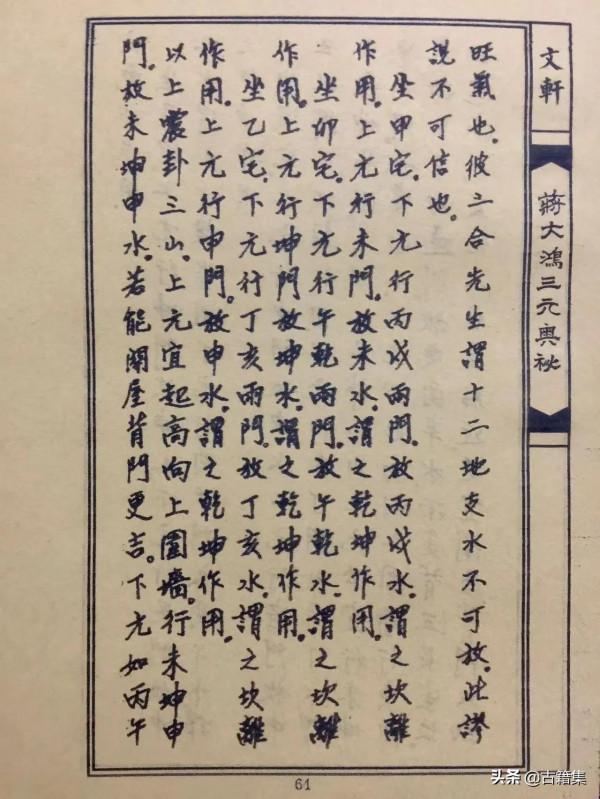 文軒
蔣大鴻三元奧祕
旺氣也。彼三合先生謂十二地支水不可放。此謬
說不可信也。
坐甲宅。下元行丙戌兩門。放丙戌水。謂之坎離
作用。上元行未門。放未水。謂之乾坤作用。
坐卯宅。下元行午乾兩門。放午乾水。謂之坎離
作用。上元行坤門放坤水。謂之乾坤作用。
坐乙宅。下元行丁亥兩門。放丁亥水。謂之坎離
作用。上元行申門。放申水。謂之乾坤作用。
以上震卦三山。上元宜起高向上圍墻。行未坤申
門。放未坤申水。若能開屋背門更吉。下元如丙午
61
头条 @古籍集